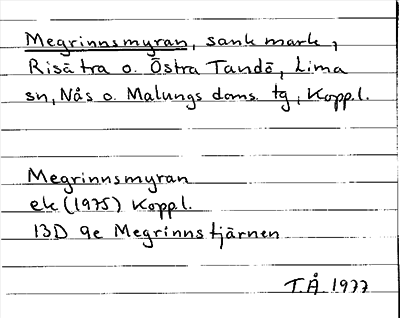 Megrinnsmyran, sank mark,
Risätra o. Östra Tandö, Lima
sn, Nås o. Malungs doms. tg, Koppl.
Megrinnsmyran
ek (1975) Koppl.
13D 9e Megrinnstjärnen
T.Å 1977